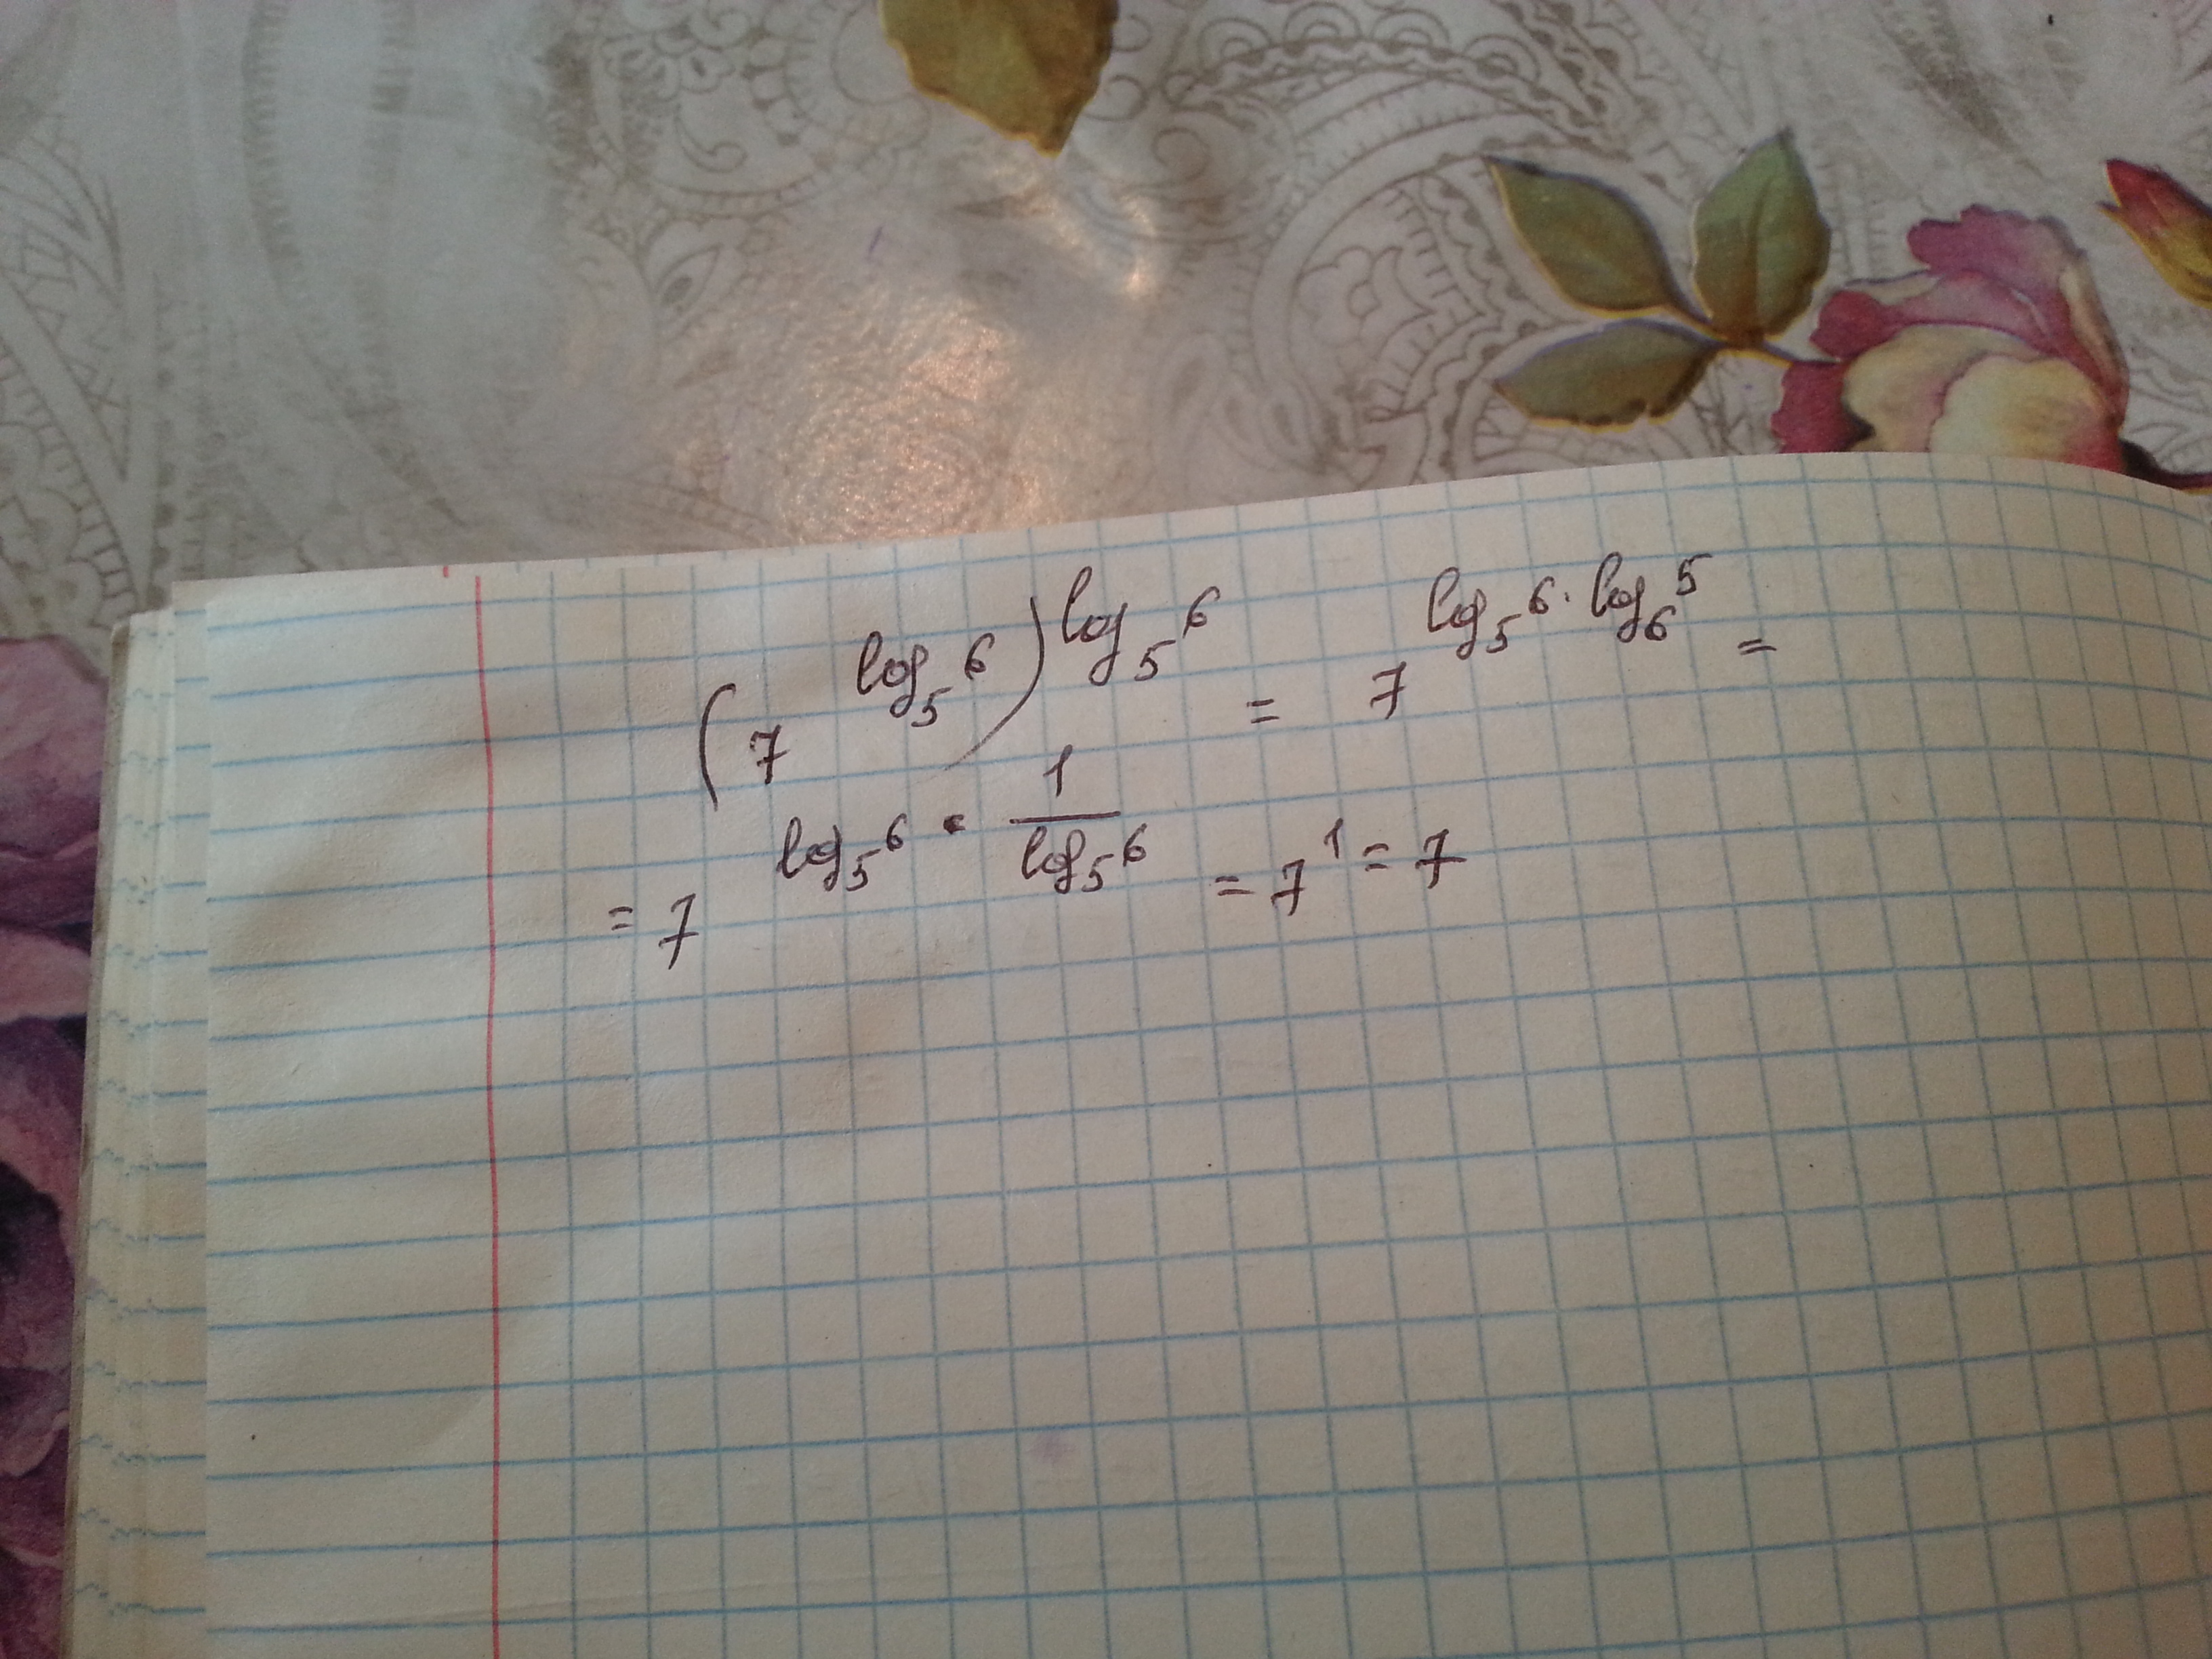 (7^{log_5 6})^{log_5 6} = 7^{log_5 6 · log_6 5} =
= 7^{log_5 6 · \frac{1}{log_5 6}} = 7^1 = 7